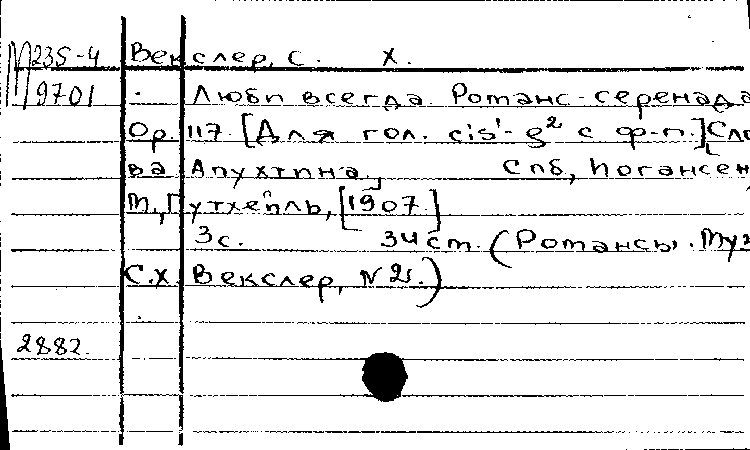 М235-4 Векслер, С. Х.
9701 Люби всегда. Романс-серенада
Ор. 117. [Для гол. cis¹-g² с ф-п.] Сло
ва Апухтина. Спб, Иогансен,
т., Гутхейль, [1907.]
3с. 34 ст. (Романсы. Муз
С.Х. Векслер, №2.)
2882.